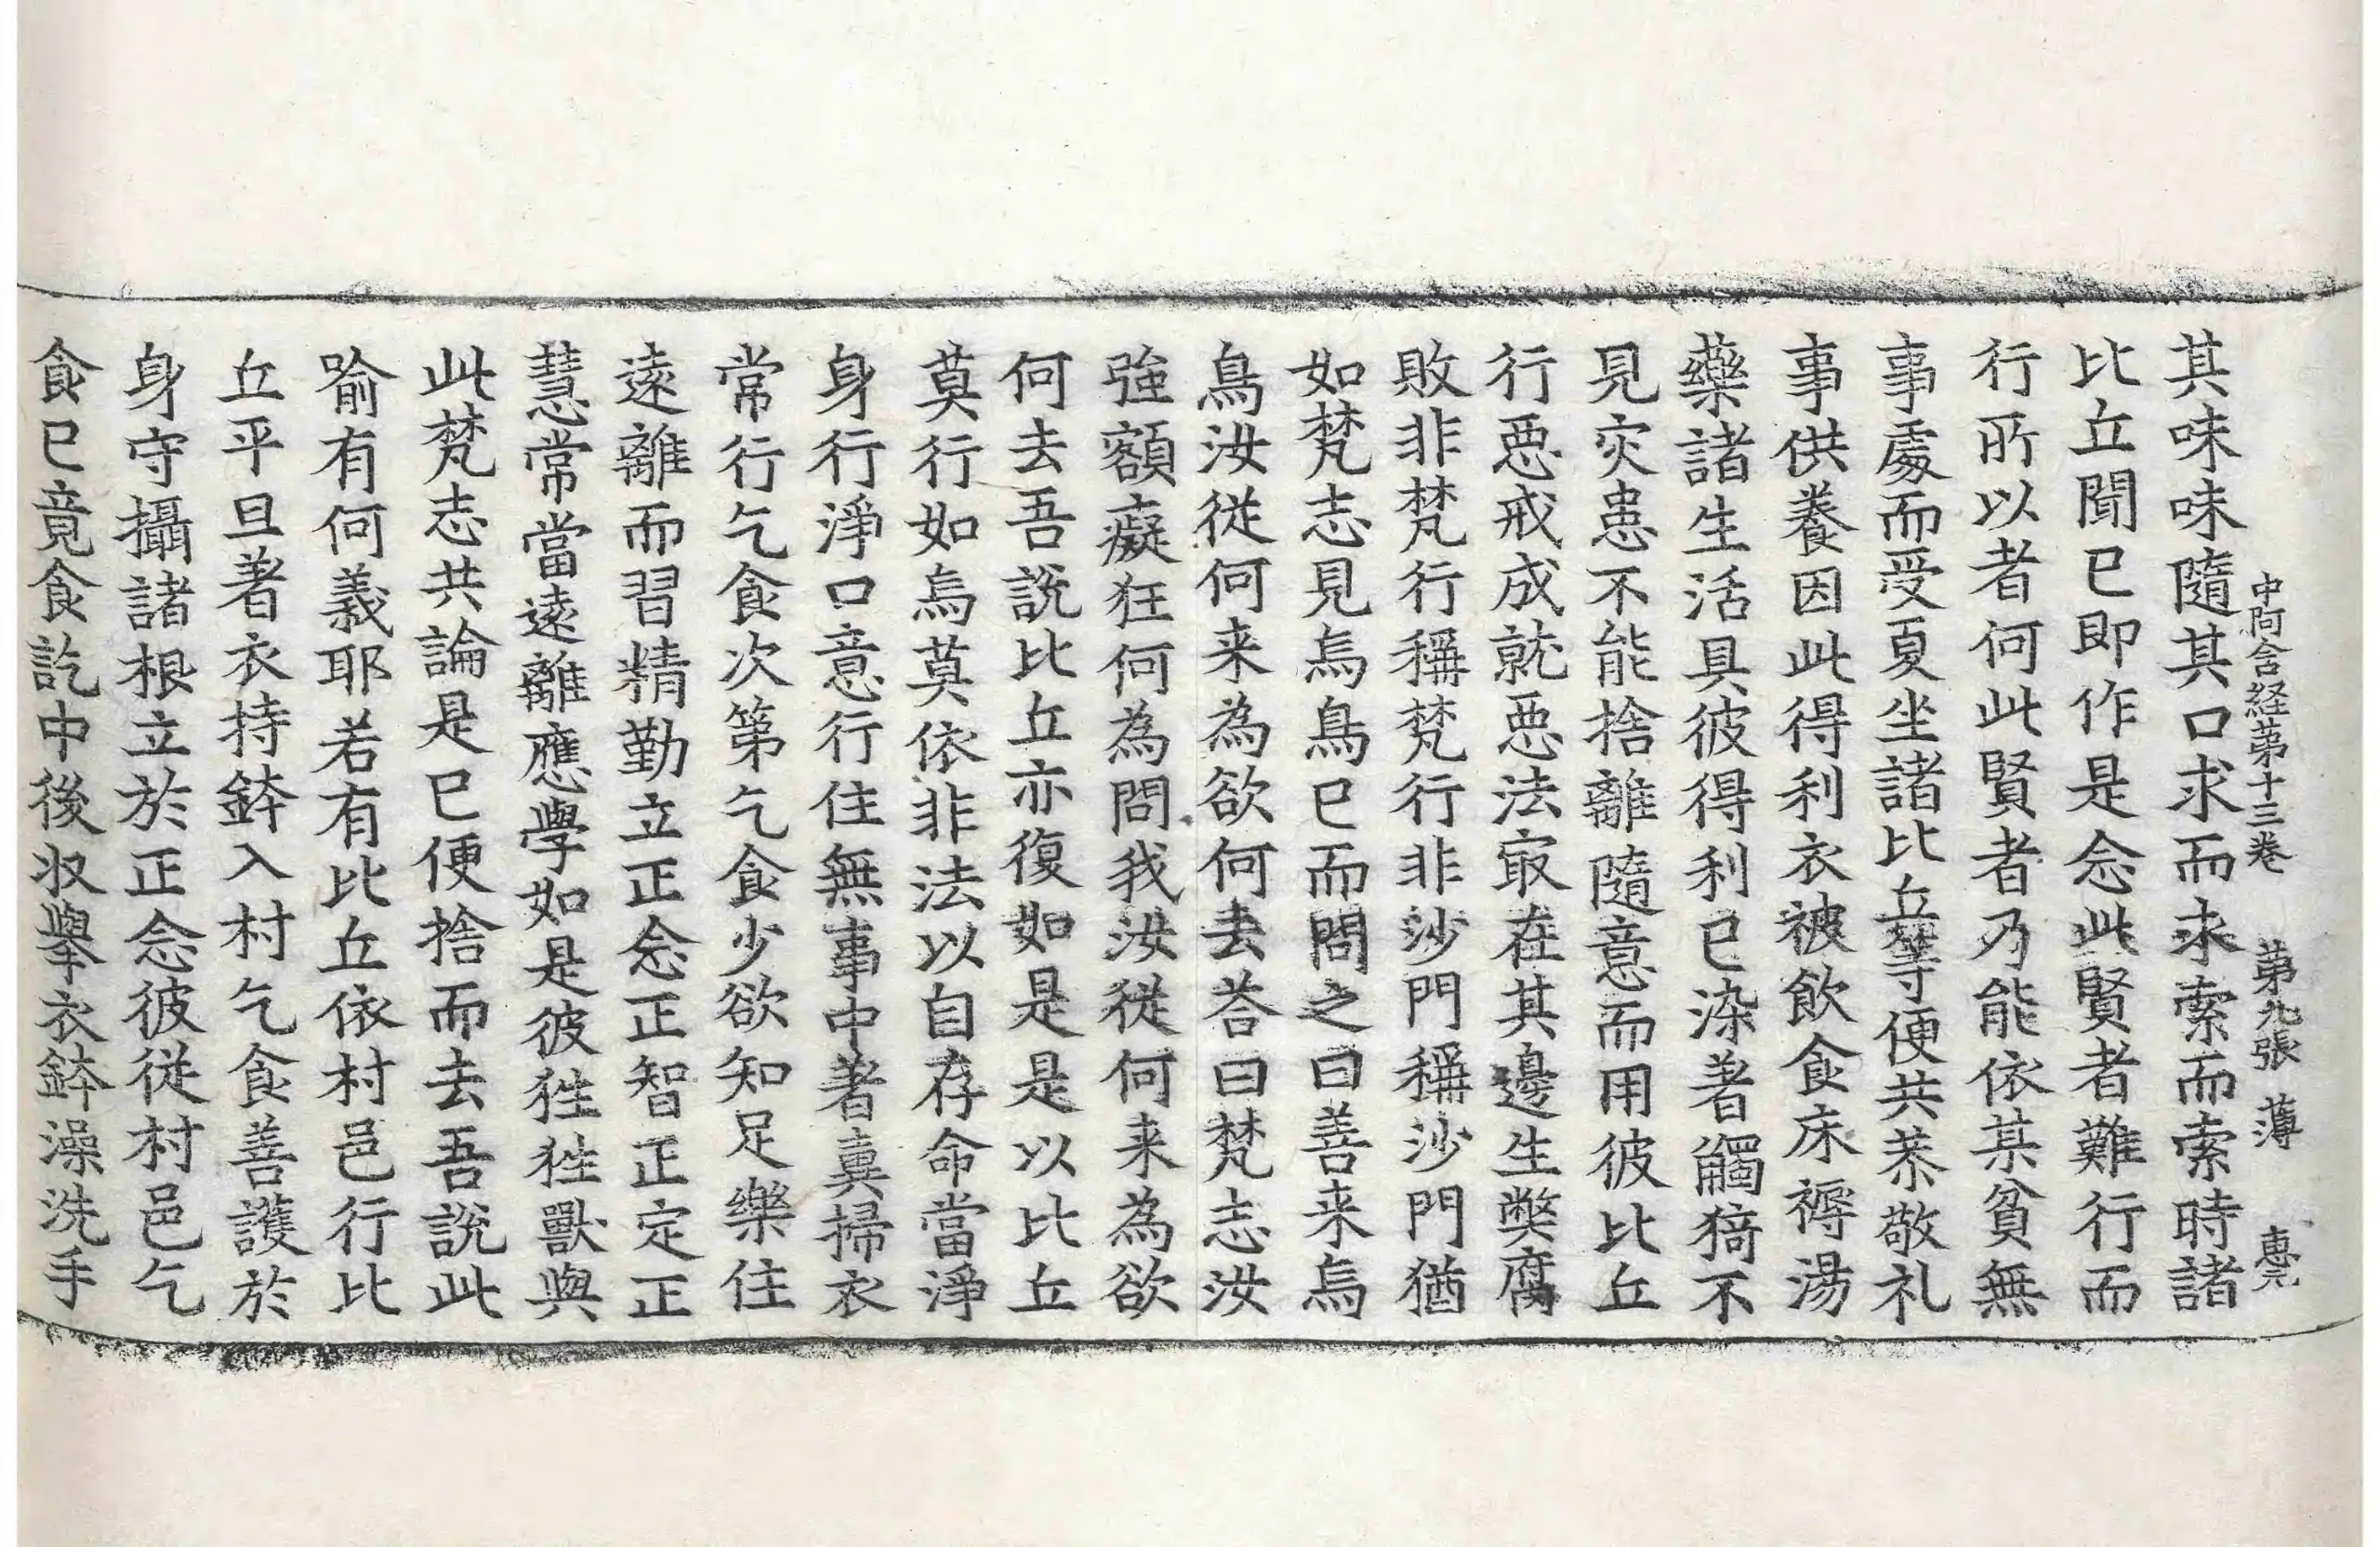 中阿含経苐十三卷 苐九張 薄 惠元
其味味隨其口求而求索而索時諸
比丘聞已即作是念此賢者難行而
行所以者何此賢者乃能依某貧無
事處而受夏坐諸比丘等便共恭敬礼
事供養因此得利衣被飲食床褥湯
藥諸生活具彼得利已染著觸猗不
見灾患不能捨離隨意而用彼比丘
行惡戒成就惡法㝡在其邊生弊腐
敗非梵行稱梵行非沙門稱沙門猶
如梵志見烏鳥已而問之曰善来烏
鳥汝從何来為欲何去荅曰梵志汝
強額癡狂何為問我汝從何来為欲
何去吾說比丘亦復如是是以比丘
莫行如烏莫依非法以自存命當淨
身行淨口意行住無事中著糞掃衣
常行乞食次第乞食少欲知足樂住
遠離而習精勤立正念正智正定正
慧常當遠離應學如是彼狌狌獸與
此梵志共論是已便捨而去吾說此
喻有何義耶若有比丘依村邑行比
丘平旦著衣持鉢入村乞食善護於
身守攝諸根立於正念彼從村邑乞
食已竟食訖中後収擧衣鉢澡洗手